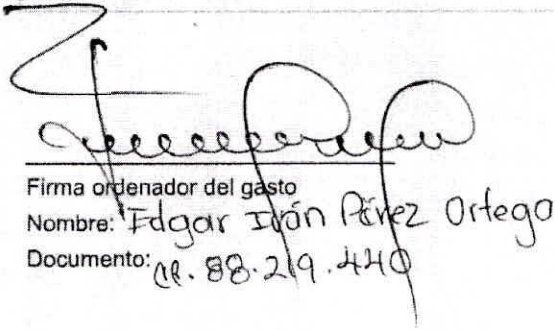 Firma ordenador del gasto
Nombre: Edgar Iván Pérez Ortega
Documento: CC. 88.219.440